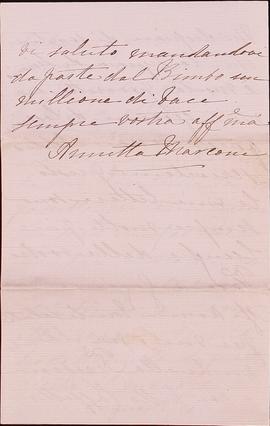 vi saluto mandandovi
da parte dal Bimbo un
millione di baci
sempre vostra aff.ma
Annetta Marconi